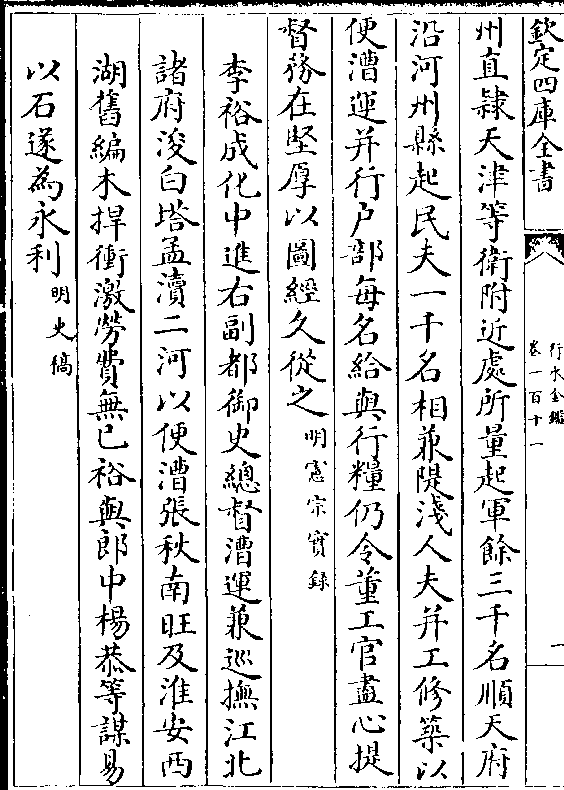 欽定四庫全書
行水金鑑
卷一百十一
一
州直隸天津等衛附近處所量起軍餘三千名順天府
沿河州縣起民夫一千名相兼隄淺人夫并工修築以
便漕運并行户部每名給與行糧仍令董工官盡心提
督務在堅厚以圖經久從之明憲宗實録
李裕成化中進右副都御史總督漕運兼巡撫江北
諸府浚白塔孟瀆二河以便漕張秋南旺及淮安西
湖舊編木捍衝激勞費無已裕與郎中楊恭等謀易
以石遂為永利明史稿